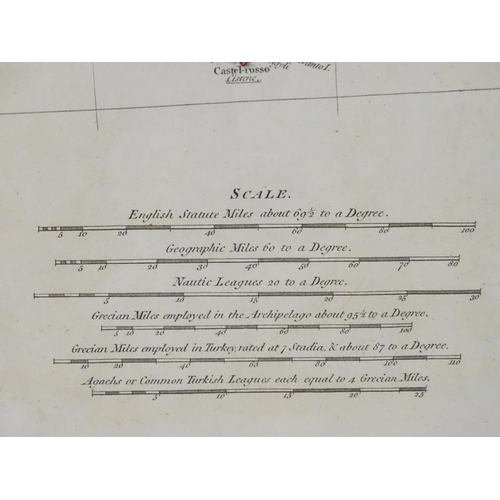 Castel-rosso
Cisthene
SCALE.
English Statute Miles about 69½ to a Degree.
5 10 20 40 60 80 100
Geographic Miles 60 to a Degree.
5 10 20 30 40 50 60 70 80
Nautic Leagues 20 to a Degree.
5 10 15 20 25 30
Grecian Miles employed in the Archipelago about 95½ to a Degree.
5 10 20 40 60 80 100
Grecian Miles employed in Turkey, rated at 7 Stadia, & about 87 to a Degree.
10 20 40 60 80 100 110
Agachs or Common Turkish Leagues each equal to 4 Grecian Miles.
5 10 15 20 25